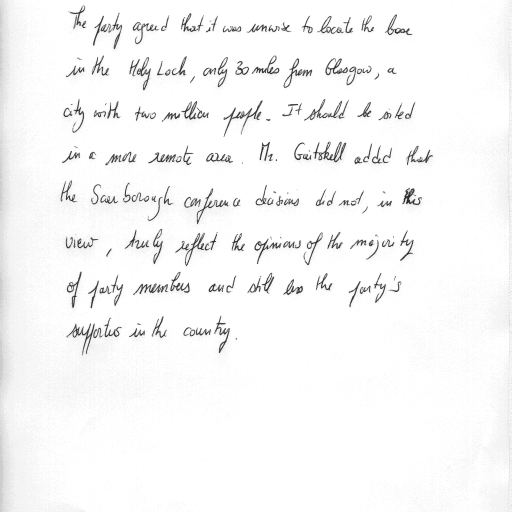 The party agreed that it was unwise to locate the base
in the Holy Loch, only 30 miles from Glasgow, a
city with two million people. It should be sited
in a more remote area. Mr. Gaitskell added that
the Scarborough conference decisions did not, in this
view, truly reflect the opinions of the majority
of party members and still less the party's
supporters in the country.